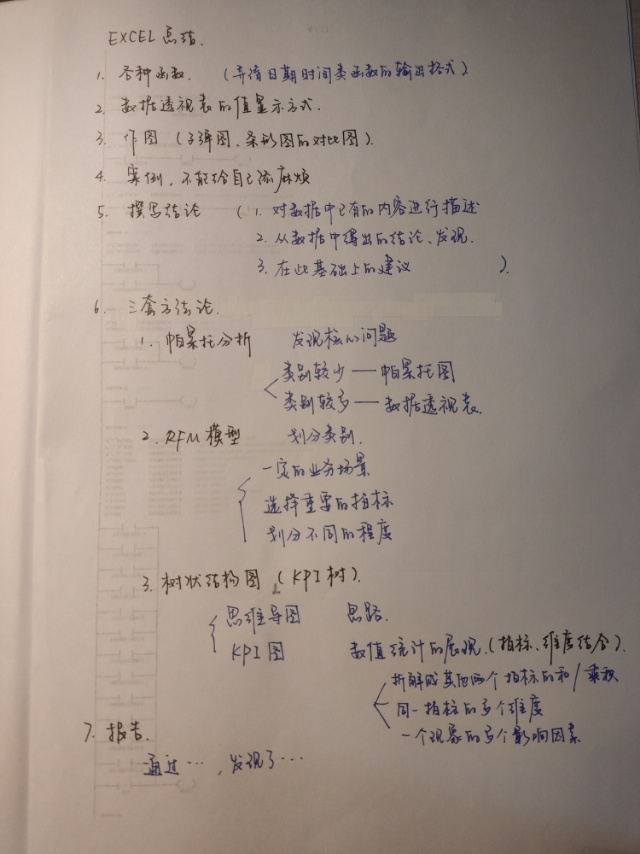 EXCEL总结.
1. 各种函数. (弄清日期时间类函数的输出格式)
2. 数据透视表的值显示方式.
3. 作图 (子弹图、条形图的对比图).
4. 案例, 不能给自己添麻烦
5. 撰写结论 (1. 对数据中已有的内容进行描述
2. 从数据中得出的结论、发现.
3. 在此基础上的建议 ).
6. 三套方法论.
1. 帕累托分析 发现核心问题
类别较少——帕累托图
类别较多——数据透视表.
2. RFM模型 划分类别.
一定的业务场景
选择重要的指标
划分不同的程度
3. 树状结构图 (KPI树).
思维导图 思路.
KPI图 数值统计的展现. (指标、维度结合).
拆解成其他两个指标的和/乘积
同一指标的多个维度
一个现象的多个影响因素
7. 报告.
通过…, 发现了…